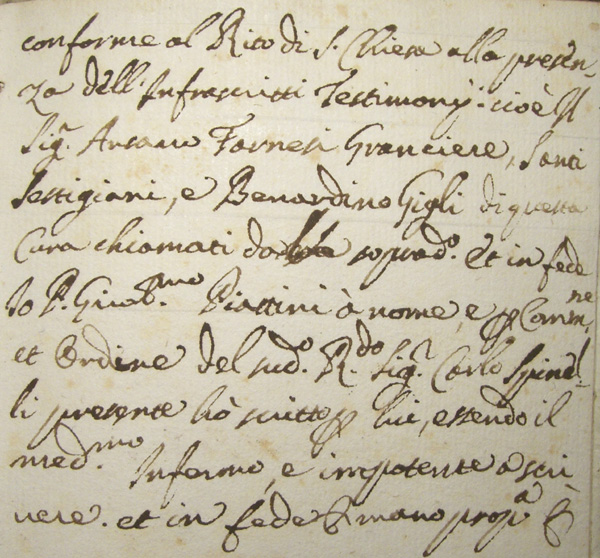 conforme al Rito di S. Chiesa alla presen-
za dell'Infrascritti Testimonij. cioè Il
Sig.r Ansano Fornesi Granciere, Santi
Sestigiani, e Benardino Gigli di questa
Cura chiamati da soprad.o. Et in fede
Io P. Piattini à nome, e Comm.ne
et Ordine del sud.o R.do Sig.r Carlo Spinel-
li presente hò scritto p lui, essendo il
med.mo Infermo, e impotente a scri
vere. et in fede mano prop.a